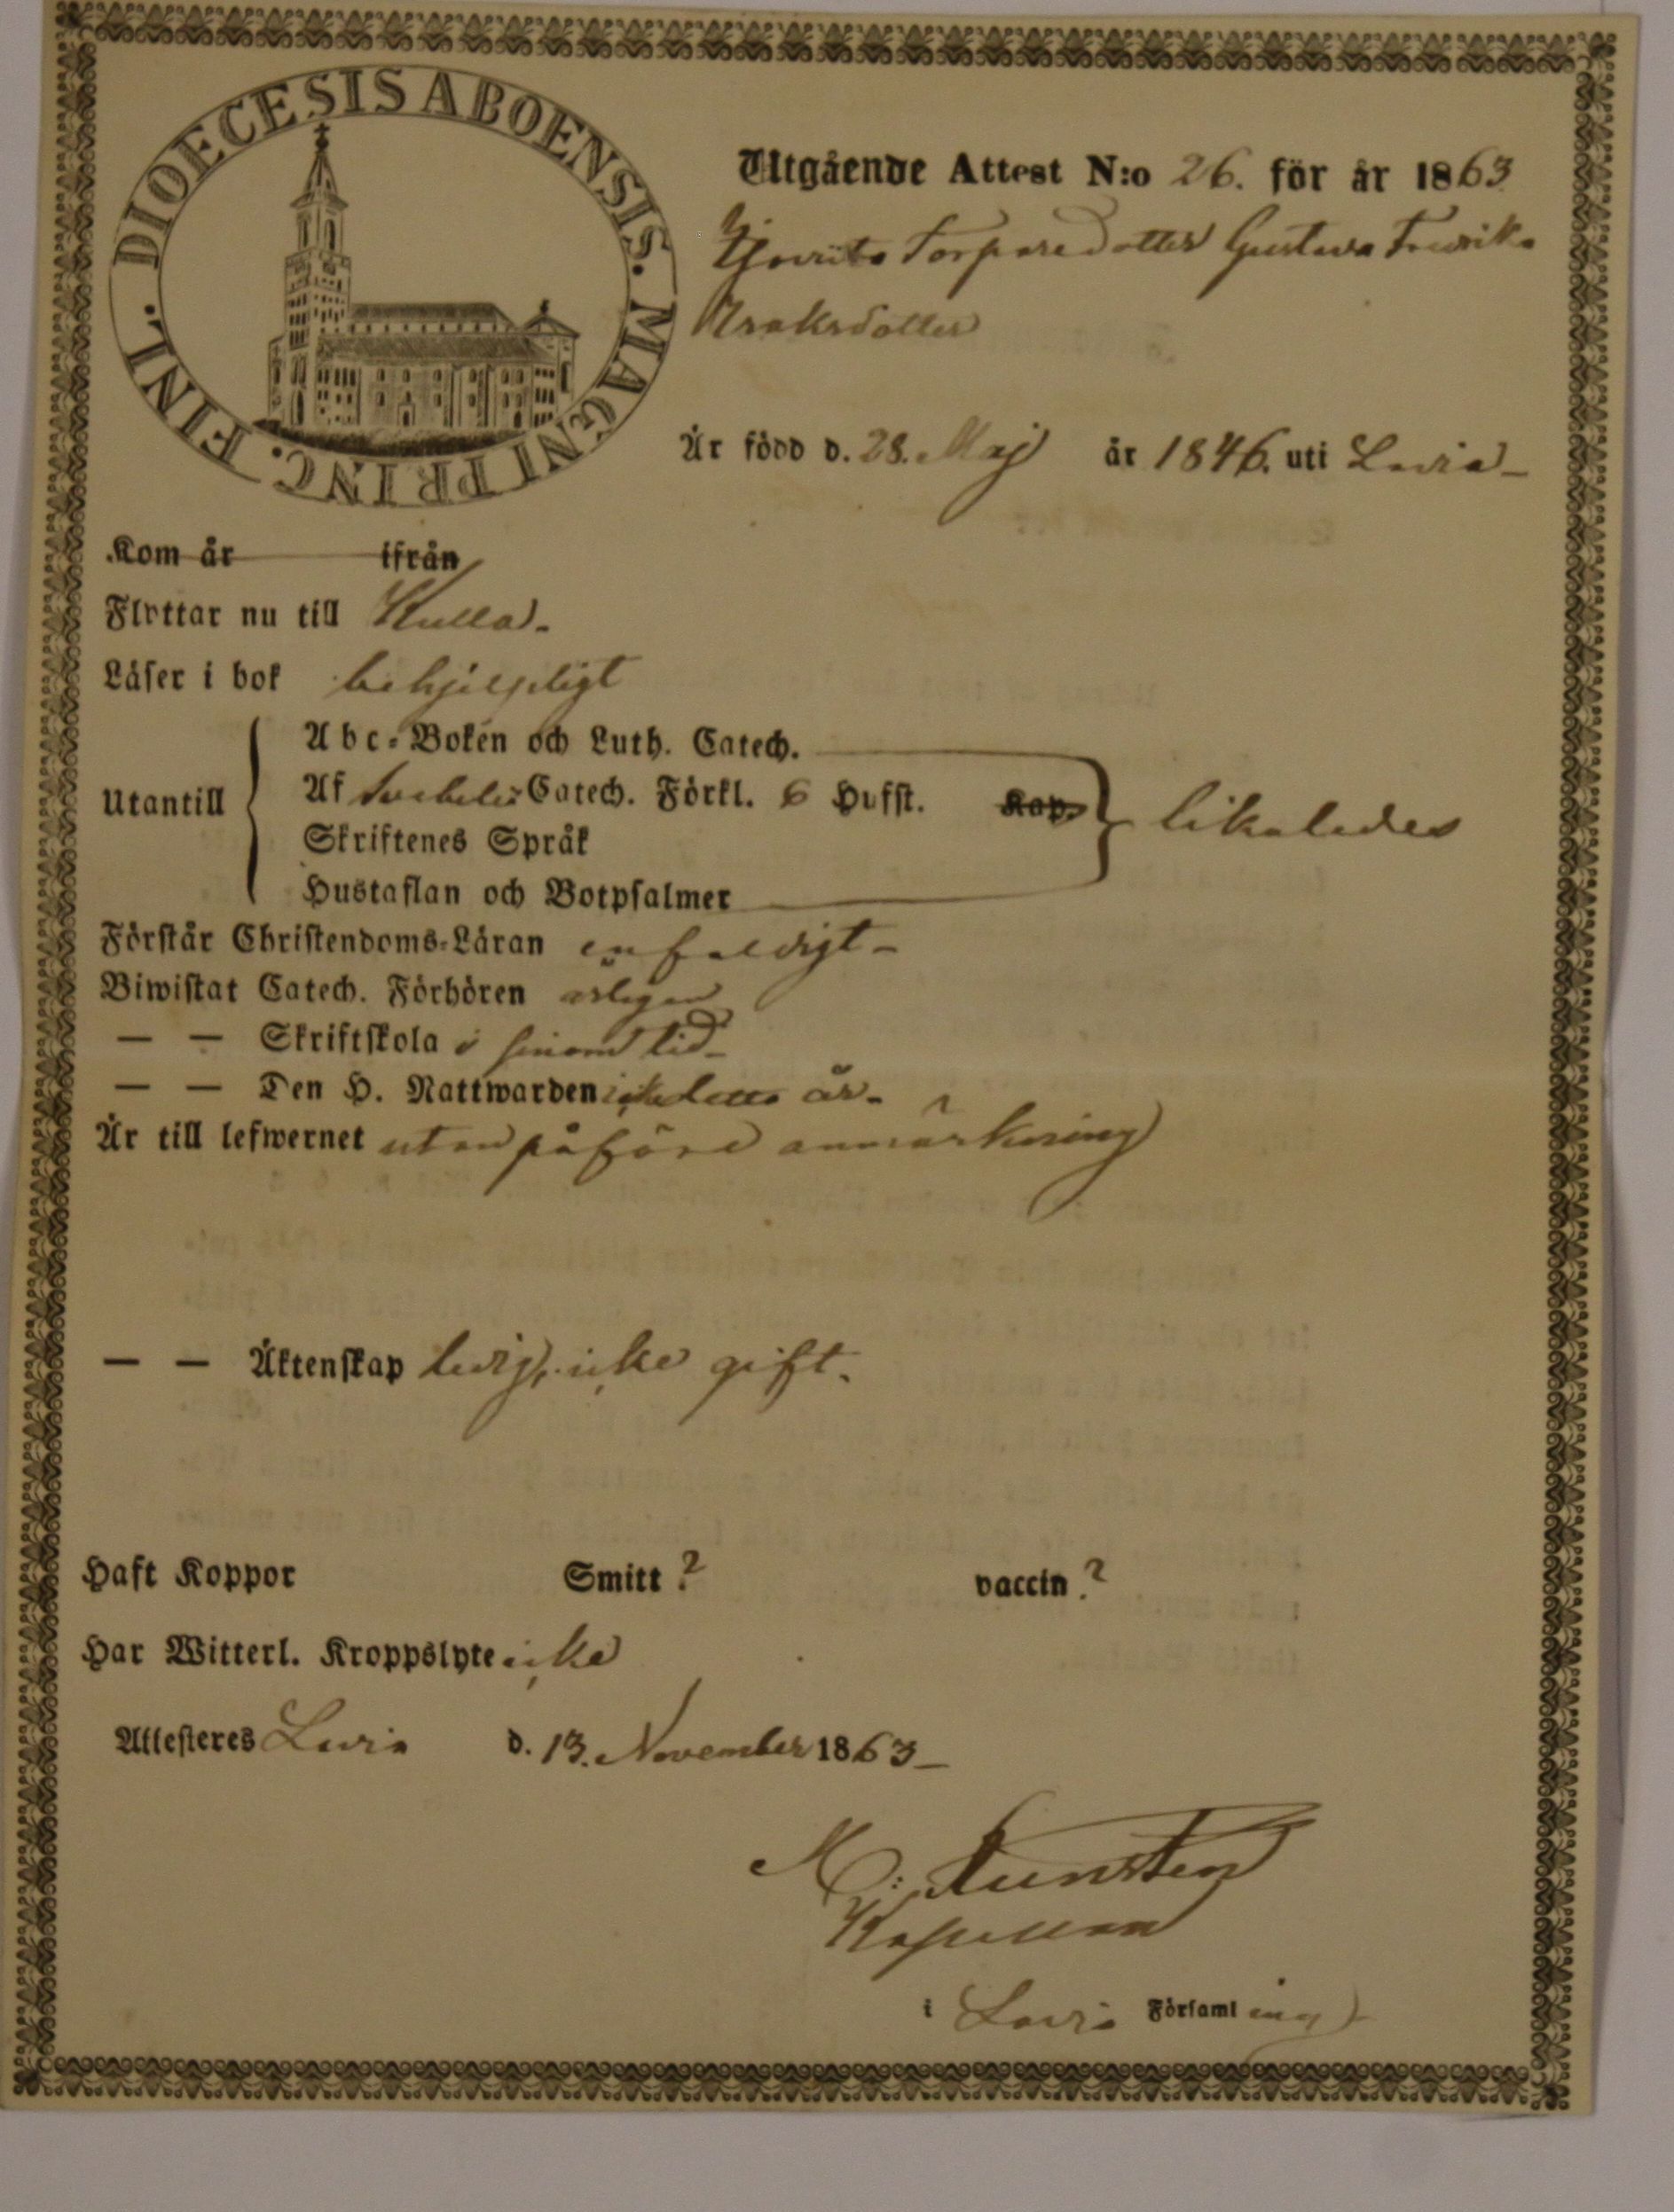 DIOECESIS ABOENSIS. MAGNI PRINC. FINL.
Utgående Attest N:o 26. för år 1863
Torparedotter Gustava Fredrika
Isaksdotter
Är född d. 28. Maj år 1846. uti Lavia
Kom år ifrån
Flyttar nu till Kulla.
Läser i bok behjelpligt
Utantill
Abc-Boken och Luth. Catech.
Af Svebelii Catech. Förkl. 6 Hufst. Kap.
likaledes
Skriftenes Språk
Hustaflan och Botpsalmer
Förstår Christendoms-Läran enfaldigt
Biwistat Catech. Förhören årligen
— — Skriftskola i sinom tid
— — Den H. Nattwarden icke detta år.
Är till lefwernet utan påförd anmärkning
— — Äktenskap ledig, icke gift.
Haft Koppor Smitt? vaccin?
Har Witterl. Kroppslyte icke
Attesteres Lavia d. 13. November 1863
Kapellan
i Lavia Församling